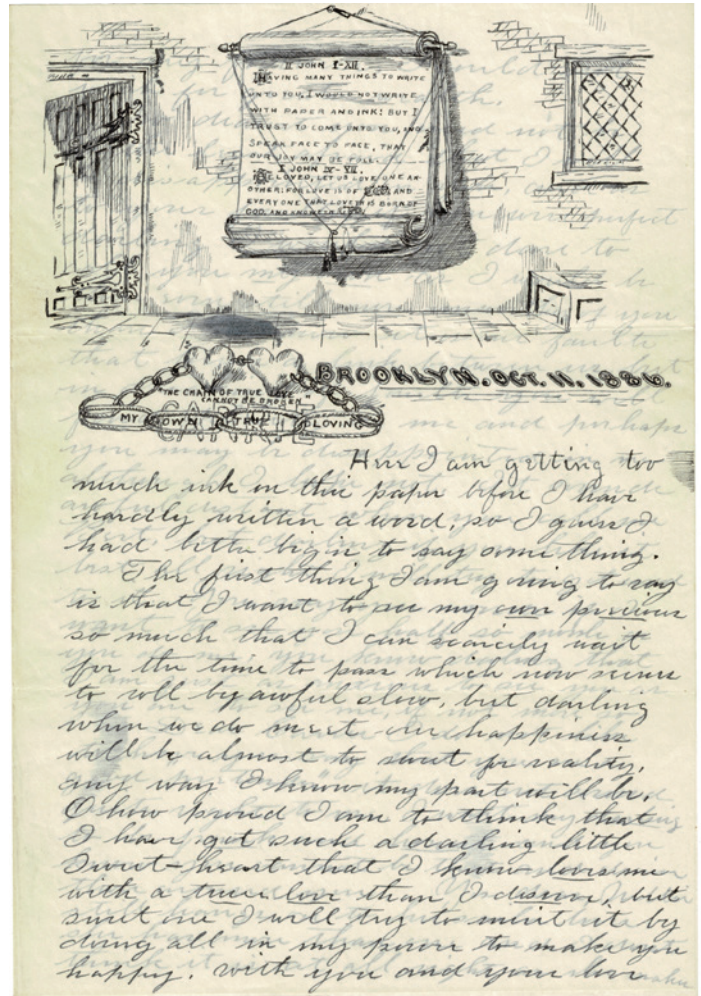 II JOHN I-XII.
HAVING MANY THINGS TO WRITE
UNTO YOU, I WOULD NOT WRITE
WITH PAPER AND INK: BUT I
TRUST TO COME UNTO YOU, AND
SPEAK FACE TO FACE, THAT
OUR JOY MAY BE FULL.
I JOHN IV-VII.
BELOVED, LET US LOVE ONE AN-
OTHER: FOR LOVE IS OF GOD AND
EVERY ONE THAT LOVETH IS BORN OF
GOD, AND KNOWETH GOD.
BROOKLYN. OCT. 11. 1886.
"THE CHAIN OF TRUE LOVE
CANNOT BE BROKEN"
MY OWN TRUE LOVING
CARRIE
Here I am getting too
much ink on this paper before I have
hardly written a word, so I guess I
had better begin to say something.
The first thing I am going to say
is that I want to see my own precious
so much that I can scarcely wait
for the time to pass which now seems
to roll by awful slow, but darling
when we do meet our happiness
will be almost to sweet for reality,
any way I know my part will be.
O how proud I am to think that
I have got such a darling little
Sweet-heart that I know loves me
with a truer love than I deserve, but
sweet one I will try to merit it by
doing all in my power to make you
happy. with you and your love